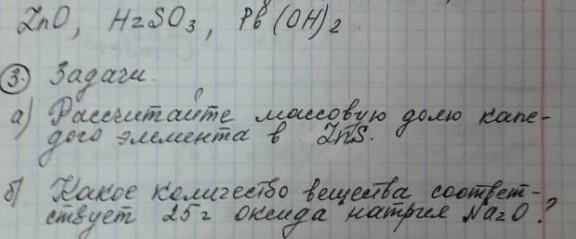 ZnO, H2SO3, Pb(OH)2
3. Задачи.
а) Рассчитайте массовую долю каж-
дого элемента в ZnS.
б) Какое количество вещества соответ-
ствует 25 г оксида натрия Na2O?